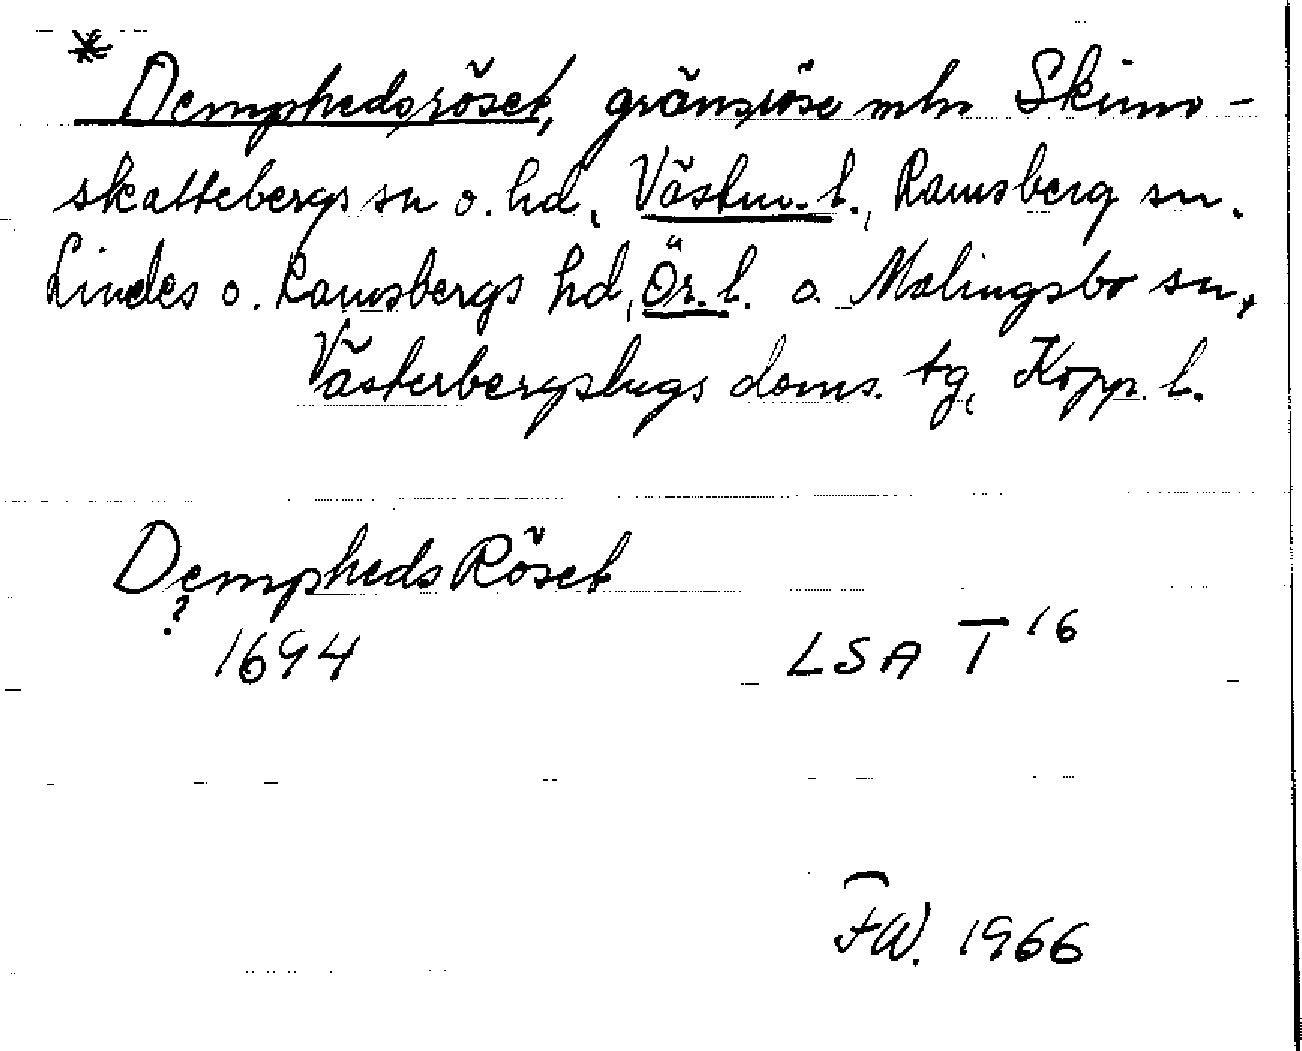 * Demphedsröset, gränsröse mln Skinn-
skattebergs sn o. hd, Västm. l., Ramsberg sn.
Lindes o. Ramsbergs hd, Ör. l. o. Malingsbo sn,
Västerbergslags doms. tg, Kopp. l.
Dempheds Röset
?
1694 LSA T 16
FW. 1966